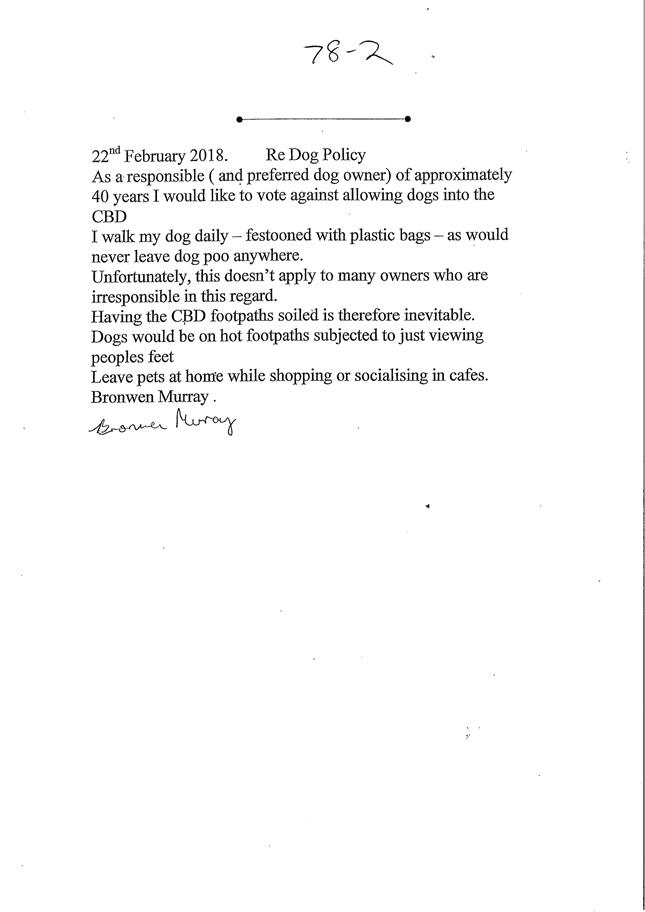 78-2
22nd February 2018. Re Dog Policy
As a responsible ( and preferred dog owner) of approximately
40 years I would like to vote against allowing dogs into the
CBD
I walk my dog daily – festooned with plastic bags – as would
never leave dog poo anywhere.
Unfortunately, this doesn't apply to many owners who are
irresponsible in this regard.
Having the CBD footpaths soiled is therefore inevitable.
Dogs would be on hot footpaths subjected to just viewing
peoples feet
Leave pets at home while shopping or socialising in cafes.
Bronwen Murray .
Bronwen Murray